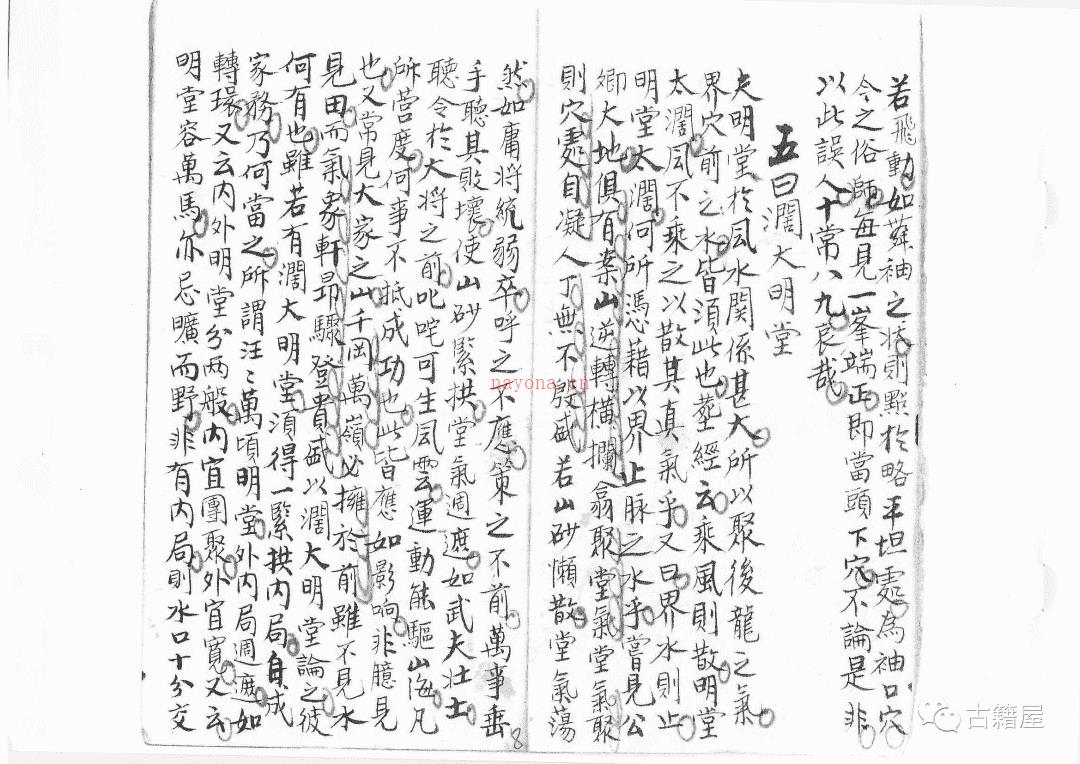 若飛動如舞袖之狀則點於略平坦處為袖口穴
今之俗師每見一峯端正即當頭下穴不論是非
以此誤人十常八九哀哉
五曰濶大明堂
夫明堂於風水関係甚大所以聚後龍之氣
界穴前之水皆須此也塟經云乘風則散明堂
太濶風不乘之以散其真氣乎又曰界水則止
明堂太濶何所馮藉以界止脉之水乎嘗見公
卿大地俱有案山逆轉橫攔翕聚堂氣堂氣聚
則穴處自凝人丁無不殷盛若山砂懶散堂氣蕩
然如庸將統弱卒呼之不應策之不前萬事垂
手聽其敗壞使山砂緊拱堂氣週遮如武夫壮士
聽令於大將之前叱咤可生風雲運動能驅山海凡
所营度何事不抵成功也此皆應如影响非臆見
也又常見大家之山千岡萬嶺必擁於前雖不見水
見田而氣象軒昂驟登貴盛以濶大明堂論之彼
何有也雖若有濶大明堂湏得一緊拱内局自成
家務乃何當之所謂汪〻萬頃明堂外内局週遮如
轉環又云内外明堂分两般内宜團聚外宜寬又云
明堂容萬馬亦忌曠而野非有内局則水口十分交
8
nayona.cn
古籍屋